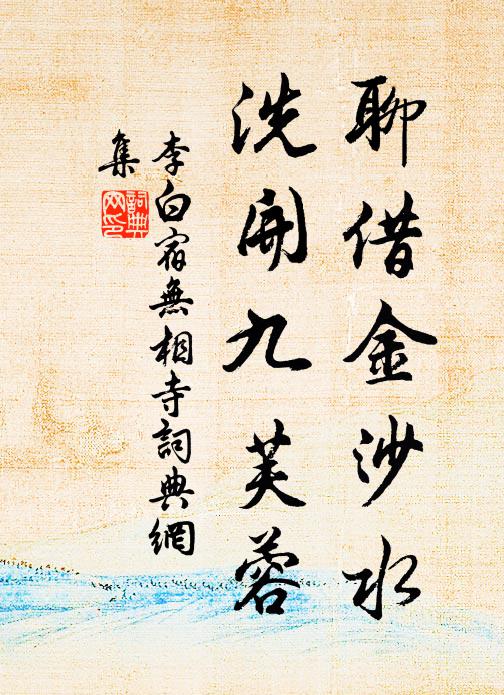 聊借金沙水
洗開九芙蓉
李白宿無相寺詞典網
集
詞典
网印